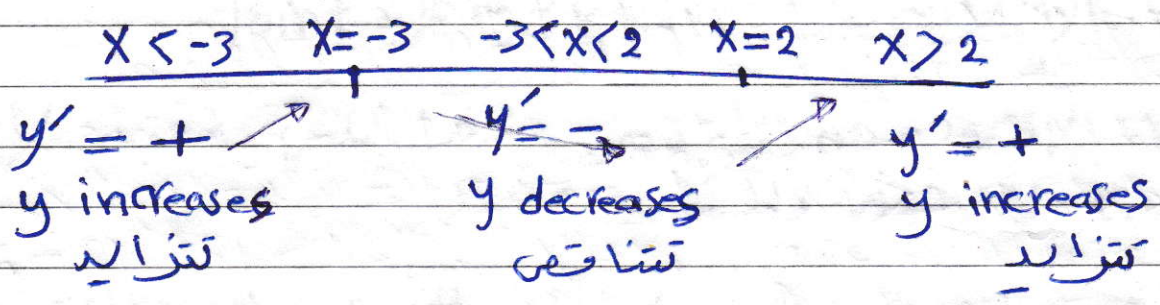 x < -3 x = -3 -3 < x < 2 x = 2 x > 2
y' = + y' = - y' = +
y increases y decreases y increases
تتزايد تتناقص تتزايد